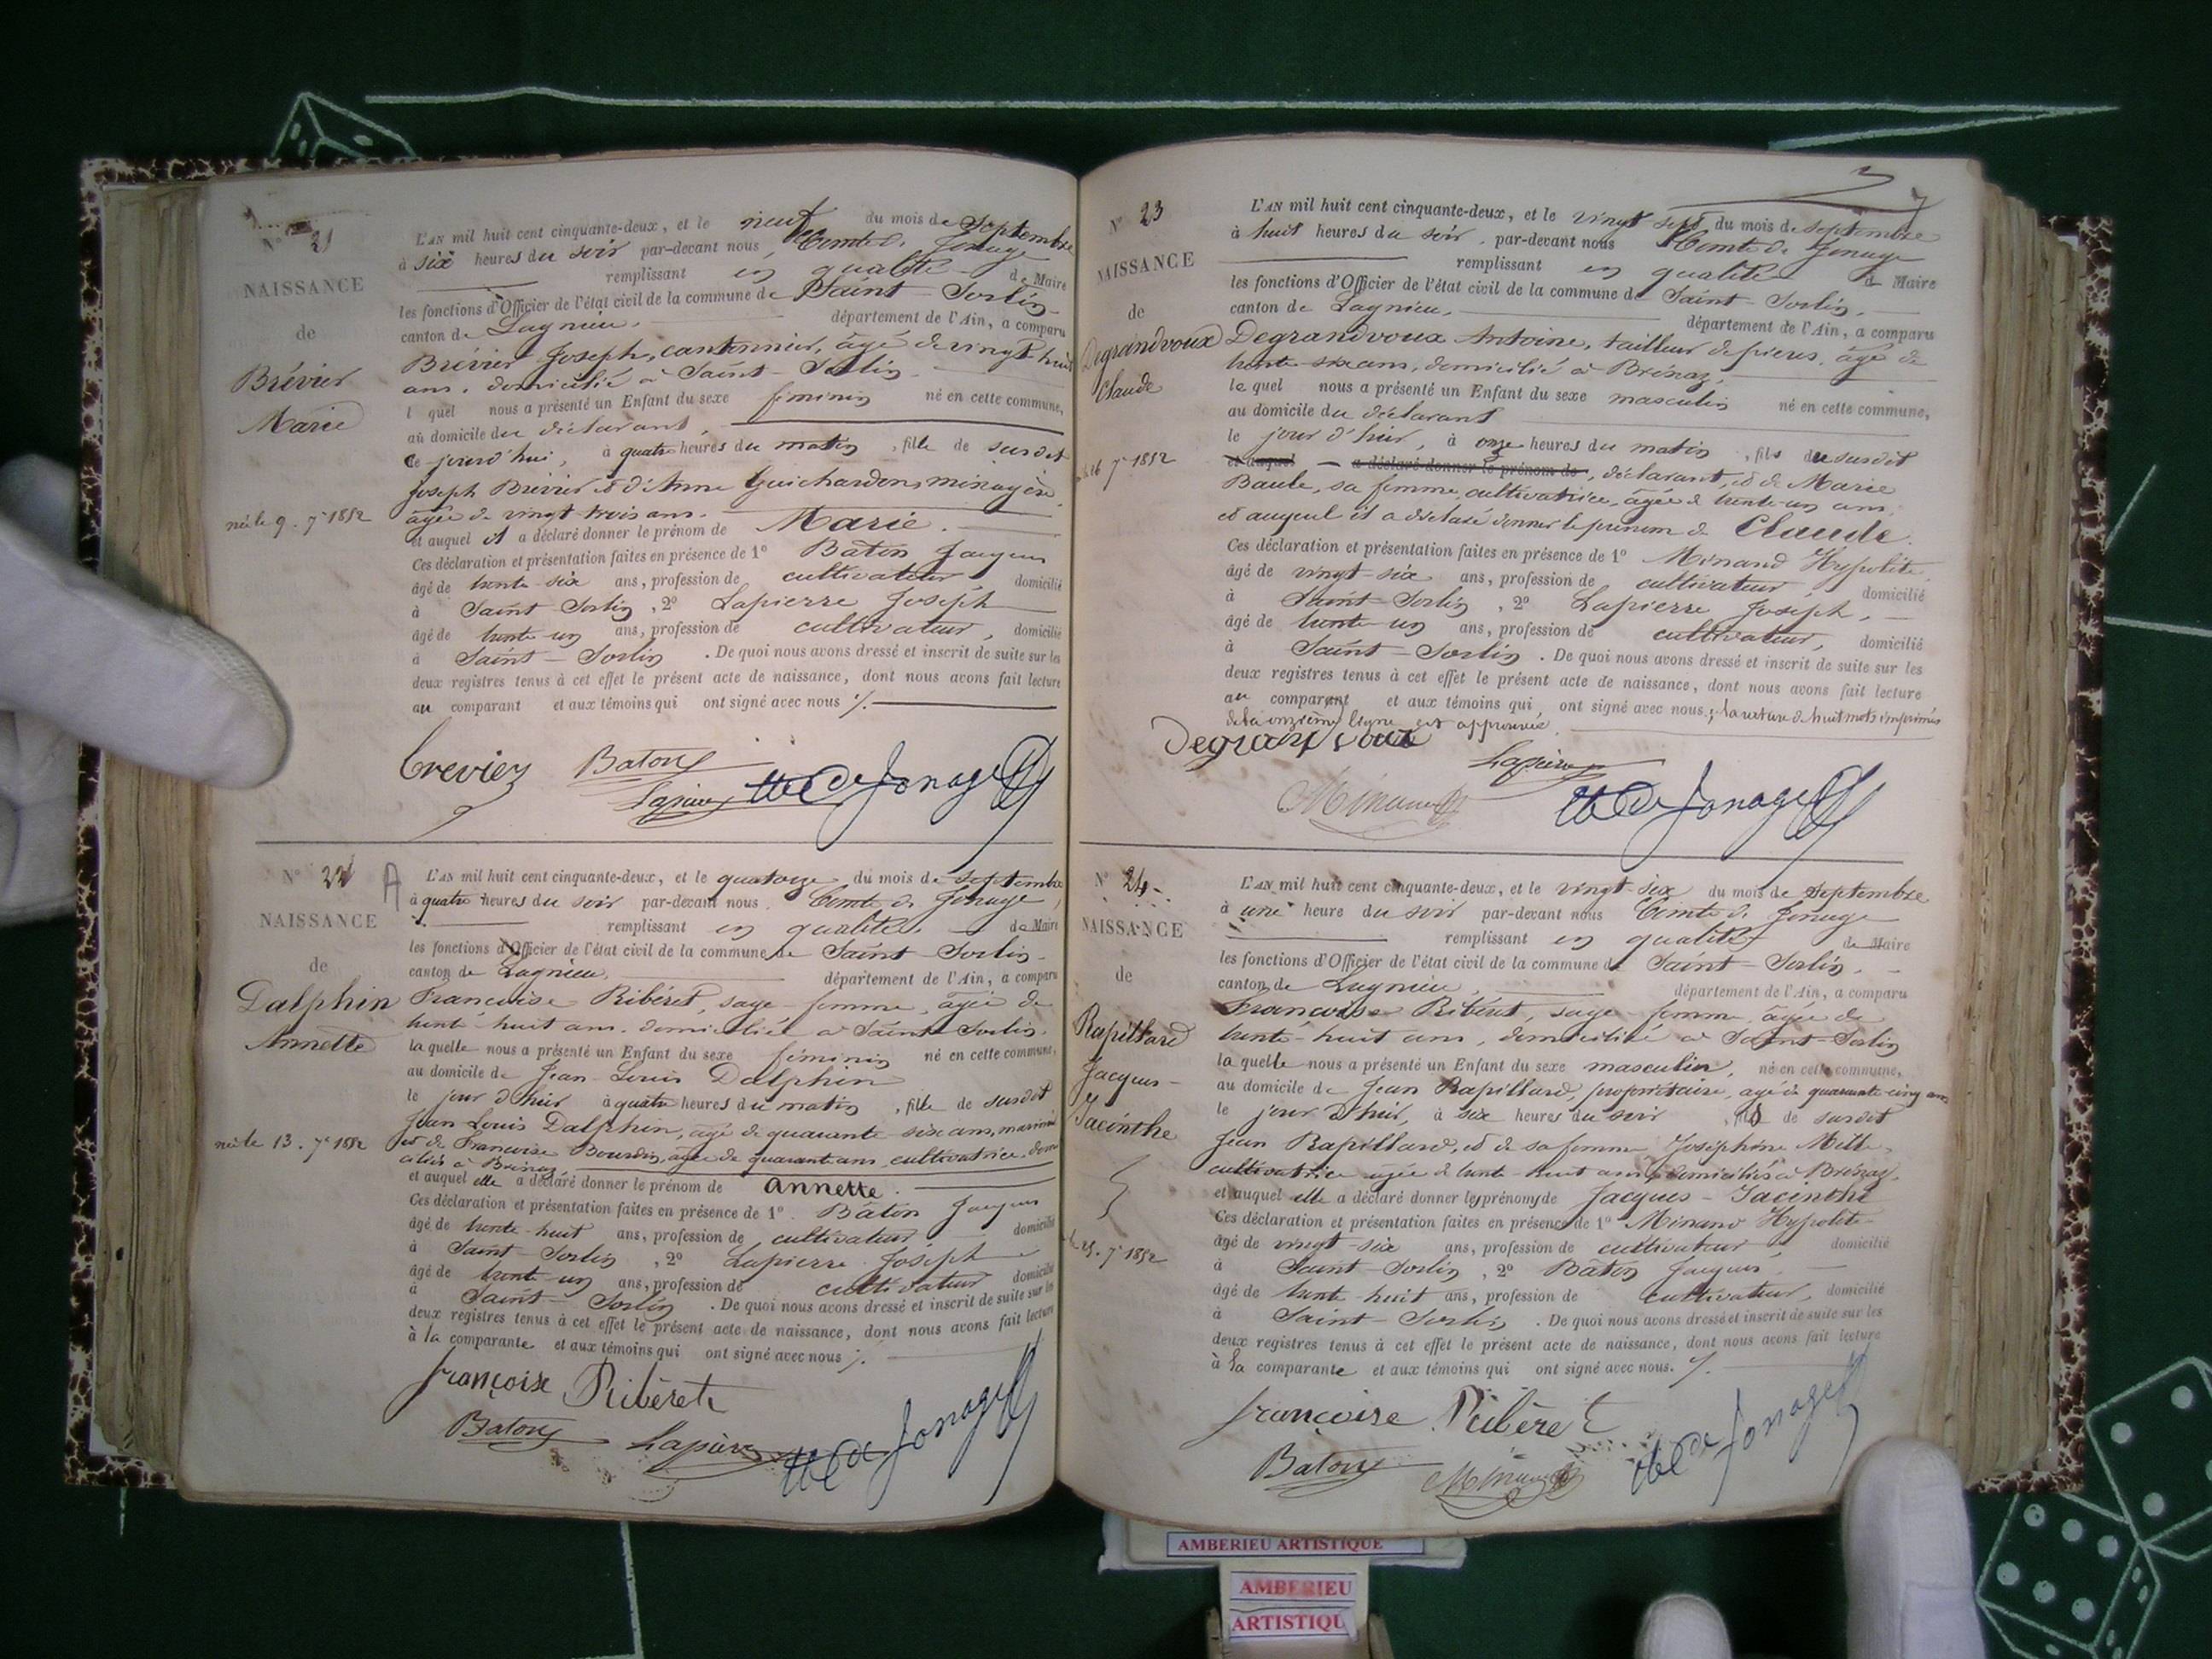 N° 21
NAISSANCE
de
Brévier
Marie
née le 9. 7re 1852
L'AN mil huit cent cinquante-deux, et le neuf du mois de Septembre
à six heures du soir par-devant nous, Comte de Jonage
remplissant en qualité de Maire
les fonctions d'Officier de l'état civil de la commune de Saint-Sorlin
canton de Lagnieu, département de l'Ain, a comparu
Brévier Joseph, cantonnier, âgé de vingt-huit
ans, domicilié à Saint-Sorlin
l quel nous a présenté un Enfant du sexe féminin né en cette commune,
au domicile du déclarant,
ce jourd'hui, à quatre heures du matin, fille de susdit
Joseph Brévier et d'Anne Guichardon, ménagère
âgée de vingt trois ans.
et auquel il a déclaré donner le prénom de Marie.
Ces déclaration et présentation faites en présence de 1° Baton Jacques
âgé de trente-six ans, profession de cultivateur domicilié
à Saint-Sorlin, 2° Lapierre Joseph
âgé de trente-un ans, profession de cultivateur, domicilié
à Saint-Sorlin. De quoi nous avons dressé et inscrit de suite sur les
deux registres tenus à cet effet le présent acte de naissance, dont nous avons fait lecture
au comparant et aux témoins qui ont signé avec nous
brevier Baton
Lapierre de Jonage
N° 22
NAISSANCE
de
Dalphin
Annette
née le 13. 7re 1852
A
L'AN mil huit cent cinquante-deux, et le quatorze du mois de septembre
à quatre heures du soir par-devant nous, Comte de Jonage,
remplissant en qualité de Maire
les fonctions d'Officier de l'état civil de la commune de Saint-Sorlin
canton de Lagnieu, département de l'Ain, a comparu
Françoise Ribéret, sage-femme, âgée de
trente-huit ans, domiciliée à Saint-Sorlin
laquelle nous a présenté un Enfant du sexe féminin né en cette commune,
au domicile de Jean-Louis Dalphin
le jour d'hier à quatre heures du matin, fille de susdit
Jean Louis Dalphin, âgé de quarante-six ans, marinier
et de Françoise Bourdin, âgée de quarante ans, cultivatrice, domi
ciliés à Brénaz,
et auquel elle a déclaré donner le prénom de Annette.
Ces déclaration et présentation faites en présence de 1° Bâton Jacques
âgé de trente-huit ans, profession de cultivateur domicilié
à Saint-Sorlin, 2° Lapierre Joseph
âgé de trente-un ans, profession de cultivateur domicilié
à Saint-Sorlin. De quoi nous avons dressé et inscrit de suite sur les
deux registres tenus à cet effet le présent acte de naissance, dont nous avons fait lecture
à la comparante et aux témoins qui ont signé avec nous
françoise Ribéret
Baton Lapierre de Jonage
N° 23
NAISSANCE
de
Degrandvoux
Claude
26 7re 1852
L'AN mil huit cent cinquante-deux, et le vingt sept du mois de septembre
à huit heures du soir, par-devant nous Comte de Jonage
remplissant en qualité de Maire
les fonctions d'Officier de l'état civil de la commune de Saint-Sorlin,
canton de Lagnieu, département de l'Ain, a comparu
Degrandvoux Antoine, tailleur de pieres, âgé de
trente-six ans, domicilié à Brénaz,
le quel nous a présenté un Enfant du sexe masculin né en cette commune,
au domicile du déclarant
le jour d'hier, à onze heures du matin, fils du susdit
et auquel a déclaré donner le prénom de, déclarant, et de Marie
Baule, sa femme, cultivatrice, âgée de trente-un ans,
et auquel il a déclaré donner le prénom de Claude.
Ces déclaration et présentation faites en présence de 1° Minand Hypolite
âgé de vingt-six ans, profession de cultivateur, domicilié
à Saint-Sorlin, 2° Lapierre Joseph,
âgé de trente-un ans, profession de cultivateur, domicilié
à Saint-Sorlin. De quoi nous avons dressé et inscrit de suite sur les
deux registres tenus à cet effet le présent acte de naissance, dont nous avons fait lecture
au comparant et aux témoins qui ont signé avec nous; la rature de huit mots imprimés
de la onzième ligne est approuvée
Degrandvoux Lapierre
Minand de Jonage
N° 24
NAISSANCE
de
Rapillard
Jacques-
Jacinthe
25. 7re 1852
L'AN mil huit cent cinquante-deux, et le vingt-six du mois de septembre
à une heure du soir par-devant nous Comte de Jonage
remplissant en qualité de Maire
les fonctions d'Officier de l'état civil de la commune de Saint-Sorlin,
canton de Lagnieu, département de l'Ain, a comparu
Françoise Ribéret, sage-femme, âgée de
trente-huit ans, domiciliée à Saint-Sorlin
laquelle nous a présenté un Enfant du sexe masculin, né en cette commune,
au domicile de Jean Rapillard, propriétaire, âgé de quarante-cinq ans
le jour d'hier, à six heures du soir, fils de susdit
Jean Rapillard, et de sa femme Joséphine
cultivatrice âgée de trente-huit ans, domiciliés à Brénaz,
et auquel elle a déclaré donner les prénoms de Jacques-Jacinthe
Ces déclaration et présentation faites en présence de 1° Minand Hypolite
âgé de vingt-six ans, profession de cultivateur domicilié
à Saint-Sorlin, 2° Baton Jacques,
âgé de trente-huit ans, profession de cultivateur, domicilié
à Saint-Sorlin. De quoi nous avons dressé et inscrit de suite sur les
deux registres tenus à cet effet le présent acte de naissance, dont nous avons fait lecture
à la comparante et aux témoins qui ont signé avec nous.
françoise Ribéret
Baton Minand de Jonage
AMBERIEU ARTISTIQUE
AMBERIEU
ARTISTIQU